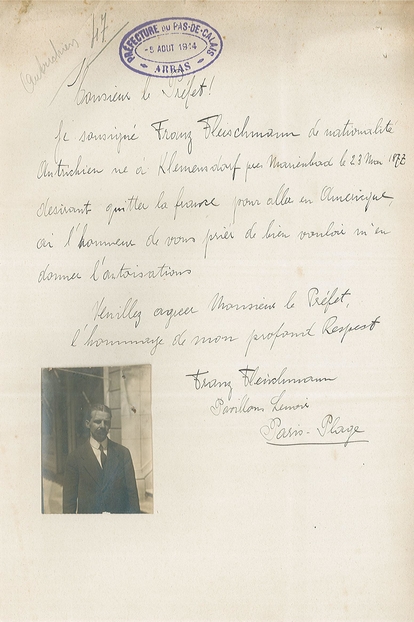 (Autrichien
47
PRÉFECTURE DU PAS-DE-CALAIS
-5 AOUT 1914
ARRAS
Monsieur le Préfet!
Je soussigné Franz Fleischmann de nationalité
Autrichien né à Klemensdorf près Marienbad le 23 Mai
désirant quitter la france pour aller en Amerique,
ai l'honneur de vous prier de bien vouloir m'en
donner l'autoisations
Veuillez agreer Monsieur le Préfet,
l'hommage de mon profond Respest
Franz Fleischmann
Pavillons Lenoir
Paris-Plage